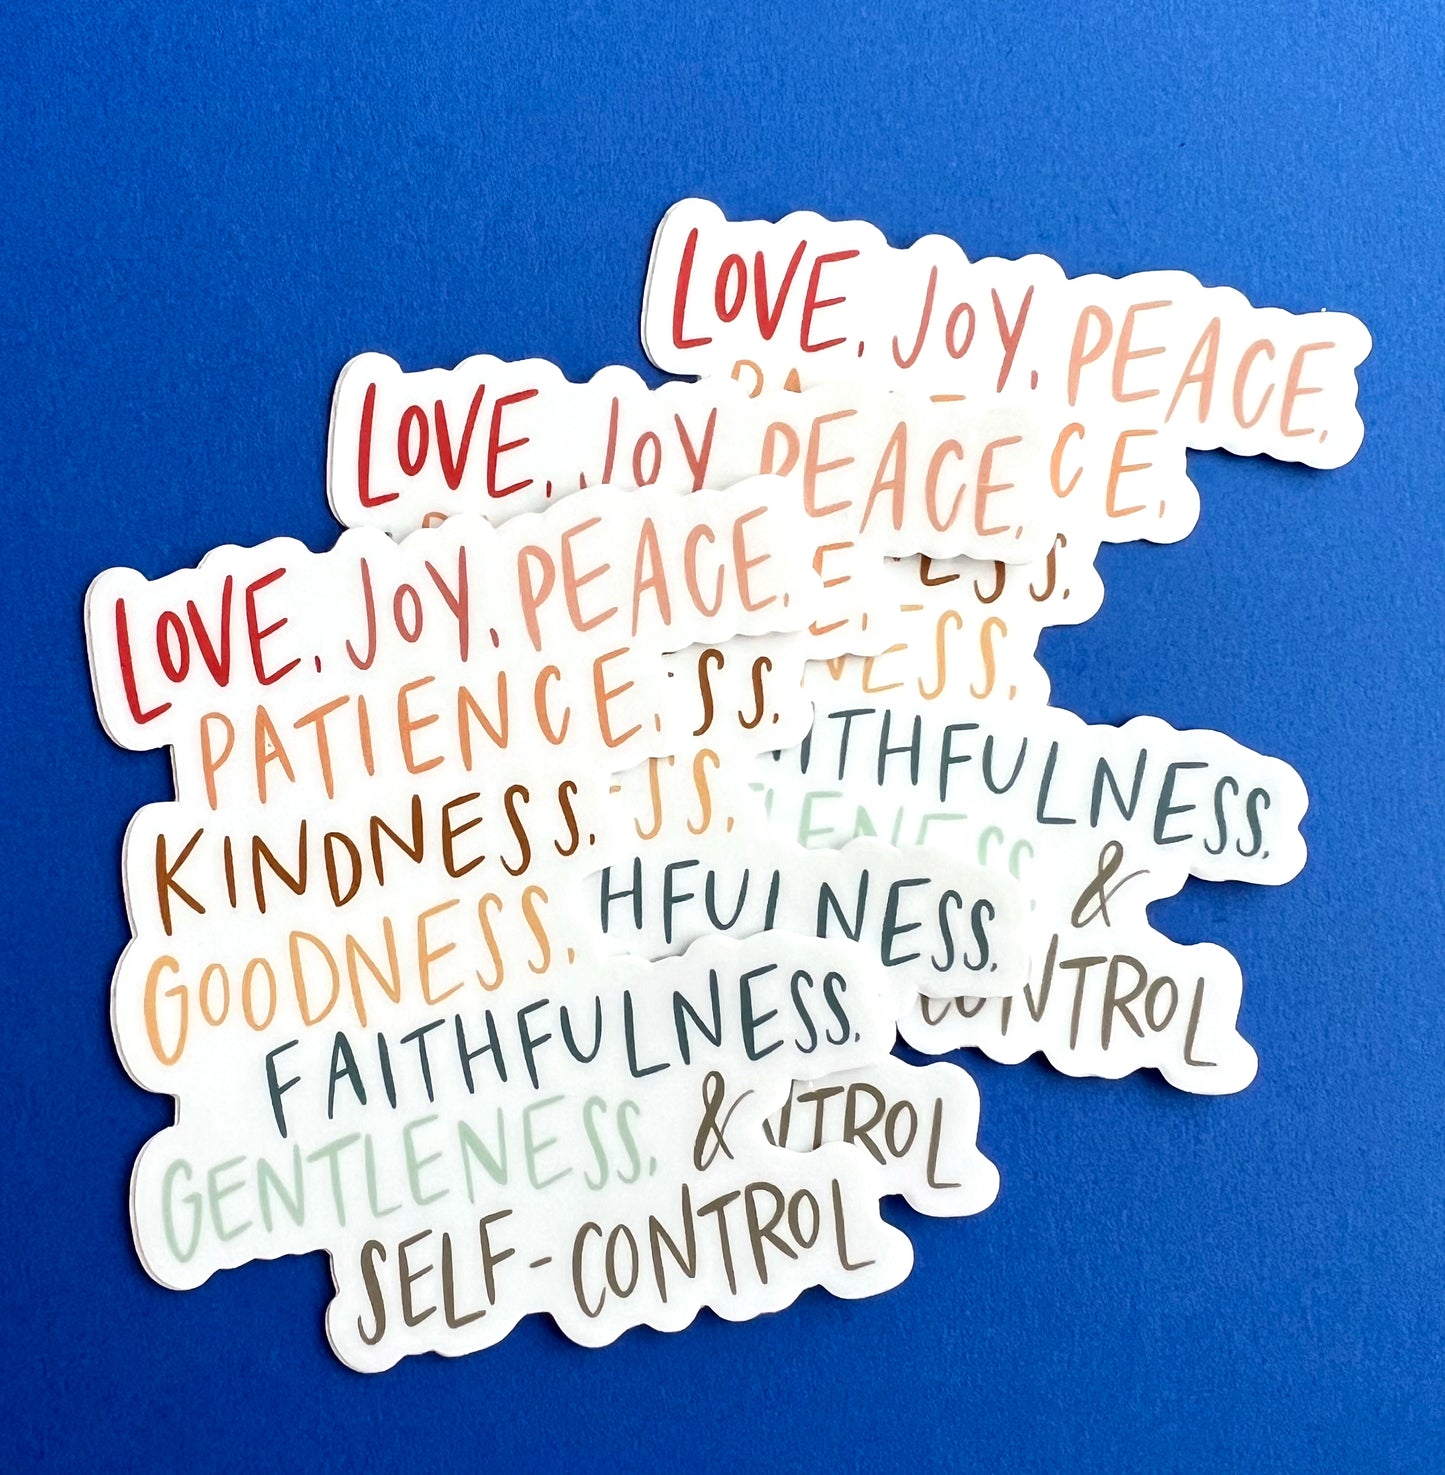 LOVE, JOY, PEACE,
LOVE, JOY, PEACE,
LOVE, JOY, PEACE,
PATIENCE,
KINDNESS,
GOODNESS,
FAITHFULNESS,
GENTLENESS, &
SELF-CONTROL
ITHFULNESS,
&
CONTROL
HFULNESS,
TROL